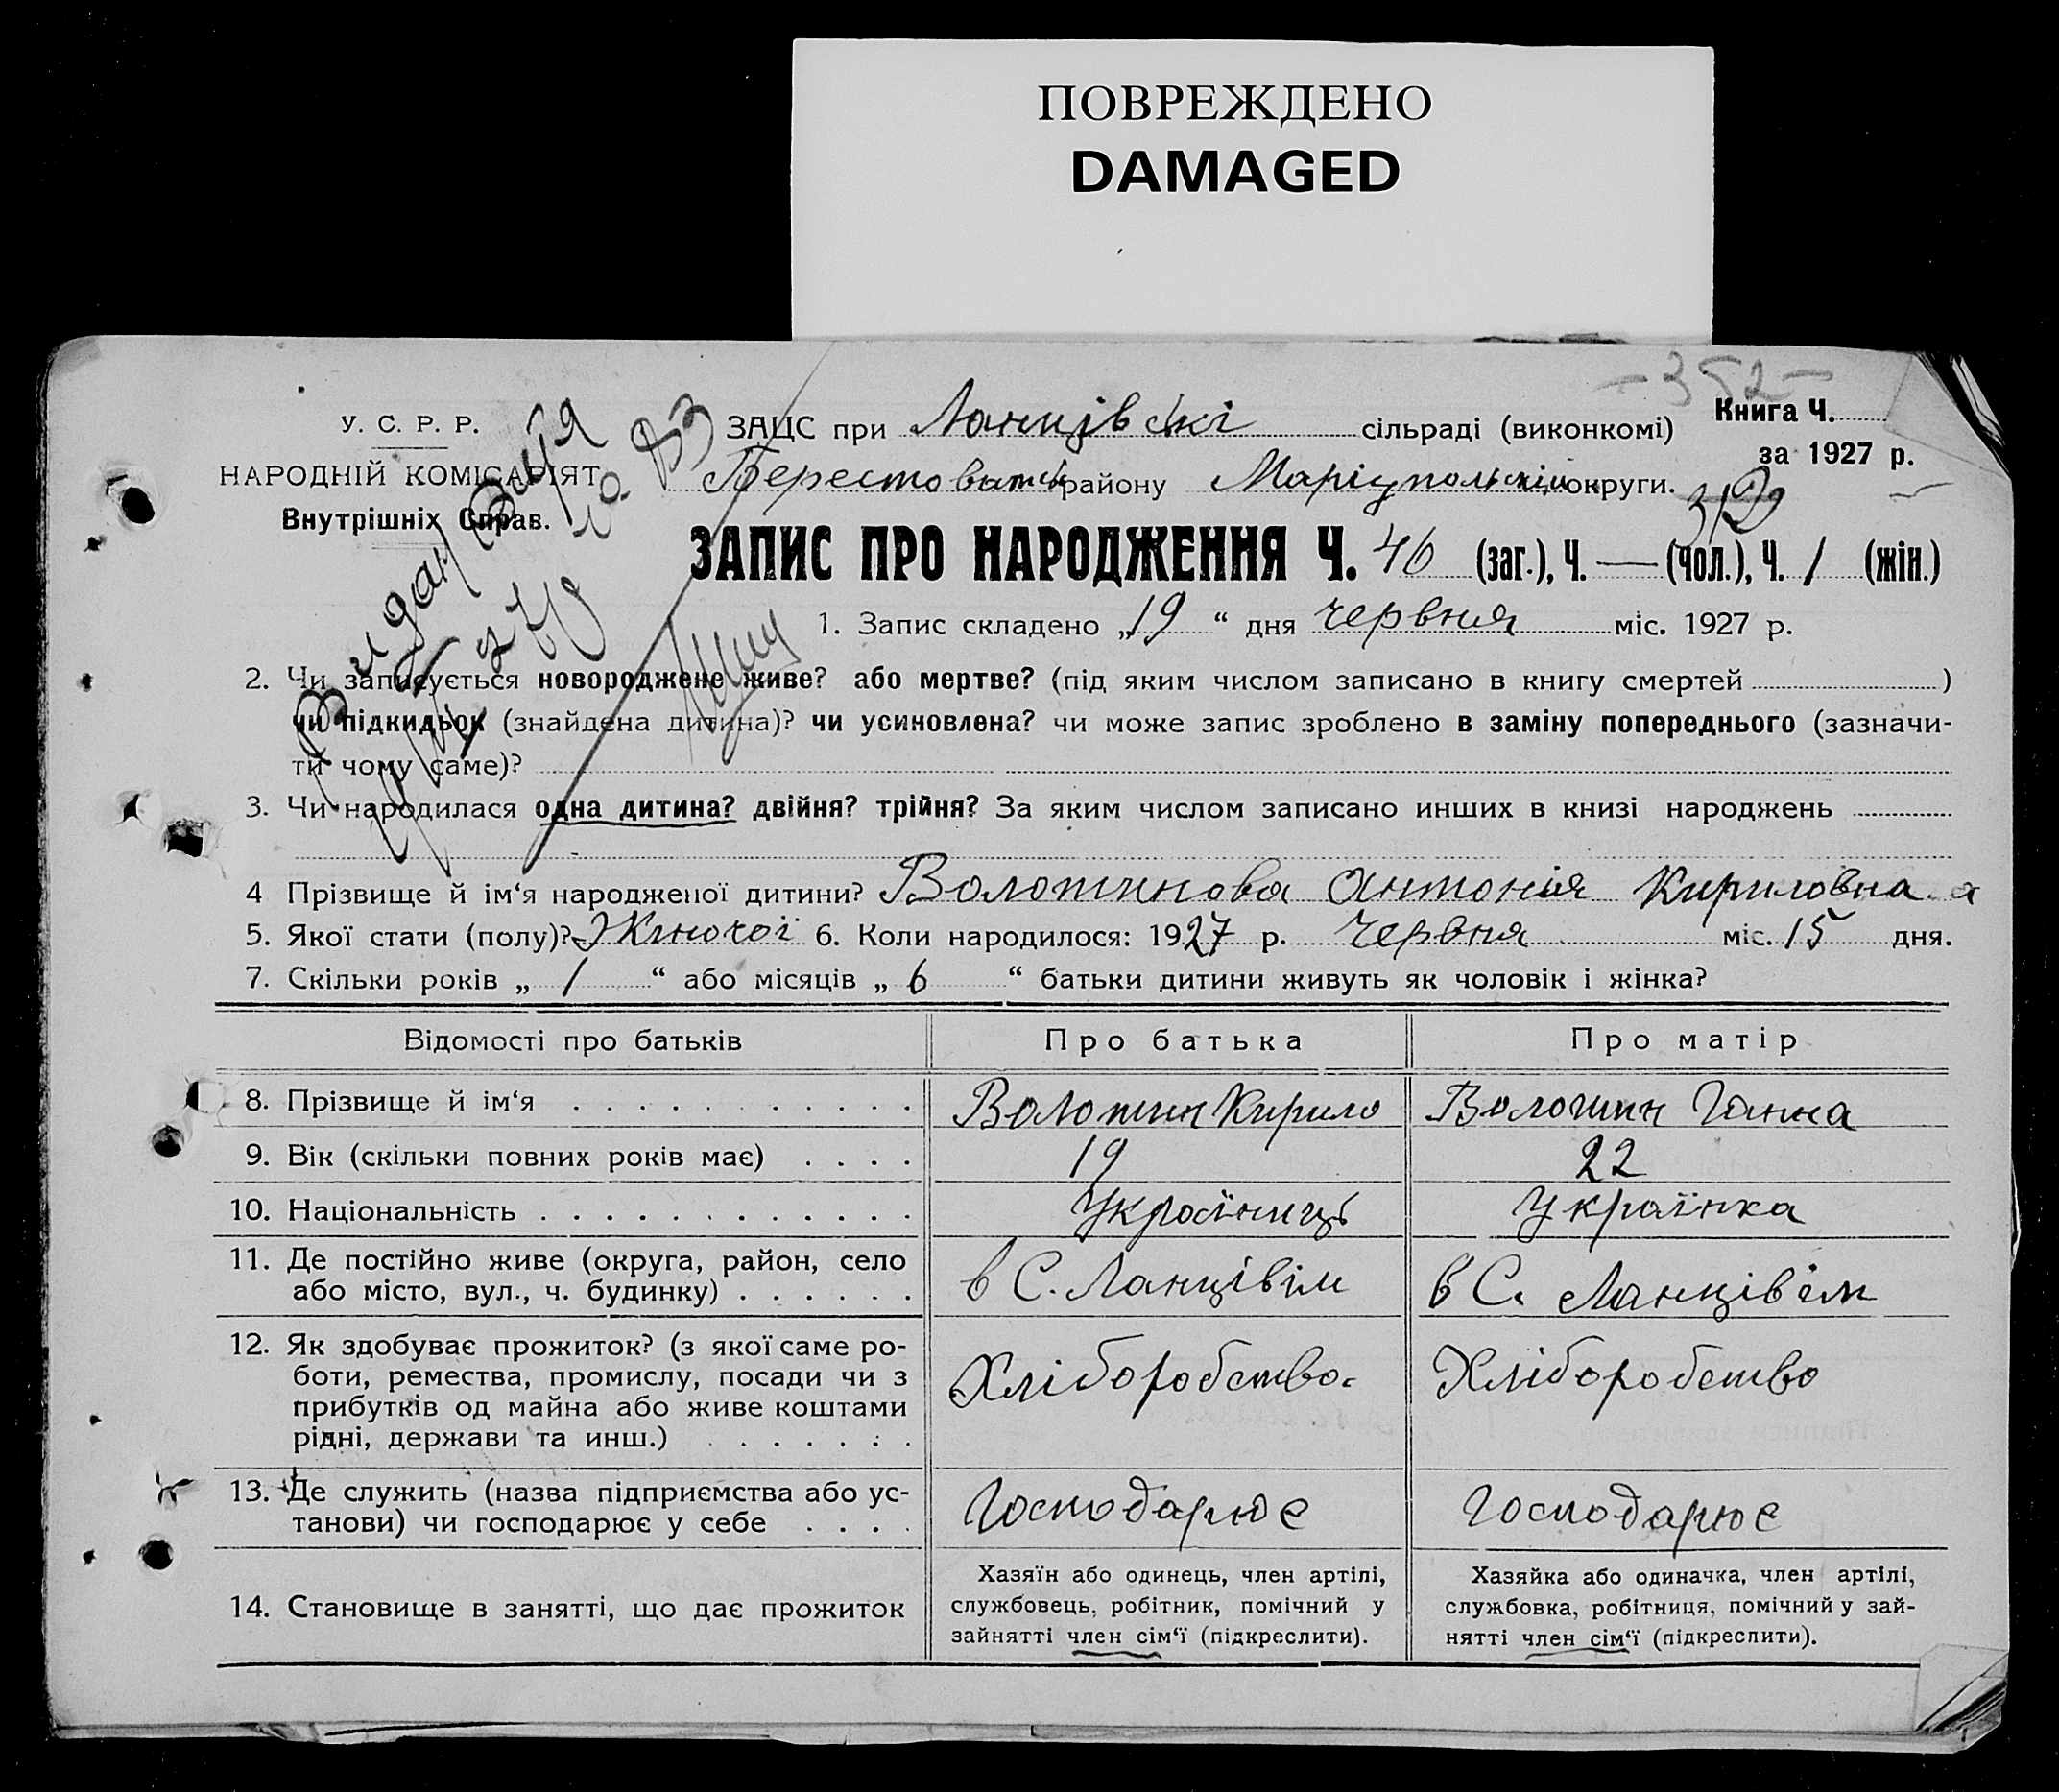 ПОВРЕЖДЕНО
DAMAGED
- 352 -
У. С. Р. Р.
НАРОДНІЙ КОМІСАРІЯТ
Внутрішніх Справ.
ЗАЦС при Ланцівскі сільраді (виконкомі)
Книга Ч.
за 1927 р.
району Маріупольскій округи.
ЗАПИС ПРО НАРОДЖЕННЯ Ч. 46 (заг.), Ч. — (чол.), Ч. 1 (жін.)
1. Запис складено „19“ дня червня міс. 1927 р.
2. Чи записується новороджене живе? або мертве? (під яким числом записано в книгу смертей )
чи підкидьок (знайдена дитина)? чи усиновлена? чи може запис зроблено в заміну попереднього (зазначи-
ти чому саме)?
3. Чи народилася одна дитина? двійня? трійня? За яким числом записано инших в книзі народжень
4 Прізвище й ім‘я народженої дитини? Волошинова Антонія Кириловна
5. Якої стати (полу)? Жіночої 6. Коли народилося: 1927 р. Червня міс. 15 дня.
7. Скільки років „ 1 “ або місяців „ 6 “ батьки дитини живуть як чоловік і жінка?
Відомості про батьків Про батька Про матір
8. Прізвище й ім‘я Волошин Кирило Волошин Ганна
9. Вік (скільки повних років має) 19 22
10. Національність Україниць Українка
11. Де постійно живе (округа, район, село
або місто, вул., ч. будинку) в С. Ланцівім в С. Ланцівім
12. Як здобуває прожиток? (з якої саме ро-
боти, ремества, промислу, посади чи з
прибутків од майна або живе коштами
рідні, держави та инш.) Хліборобство. Хліборобство
13. Де служить (назва підприємства або ус-
танови) чи господарює у себе Господарює Господарює
14. Становище в занятті, що дає прожиток
Хазяїн або одинець, член артілі,
службовець, робітник, помічний у
зайнятті член сім‘ї (підкреслити).
Хазяйка або одиначка, член артілі,
службовка, робітниця, помічний у зай-
нятті член сім‘ї (підкреслити).